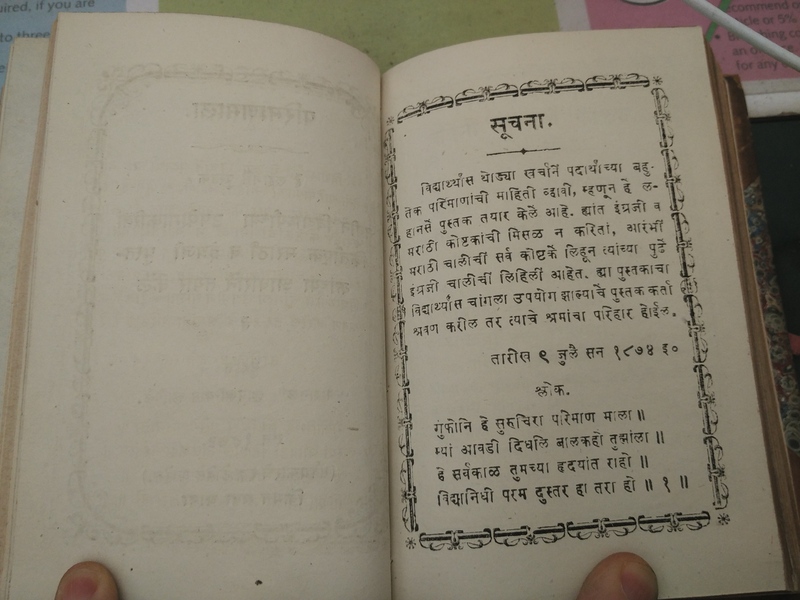 uired, if you are
to three
ecommend o
rcle or 5%
सूचना.
विद्यार्थ्यांस थोड्या खर्चानें पदार्थांच्या बहु-
तेक परिमाणांची माहिती व्हावी, म्हणून हे ल-
हानसें पुस्तक तयार केलें आहे. ह्यांत इंग्रजी व
मराठी कोष्टकांची मिसळ न करितां, आरंभीं
मराठी चालीचीं सर्व कोष्टकें लिहून त्यांच्या पुढें
इंग्रजी चालीचीं लिहिलीं आहेत. ह्या पुस्तकाचा
विद्यार्थ्यांस चांगला उपयोग झाल्याचें पुस्तक कर्ता
श्रवण करील तर त्याचे श्रमांचा परिहार होईल.
तारीख ९ जुलै सन १८७४ इ०
श्लोक.
गुंफोनि हे सुरुचिरा परिमाण माला ॥
म्यां आवडी दिधलि बालकहो तुह्मांला ॥
हे सर्वकाळ तुमच्या हृदयांत राहो ॥
विद्यानिधी परम दुस्तर हा तरा हो ॥ १ ॥